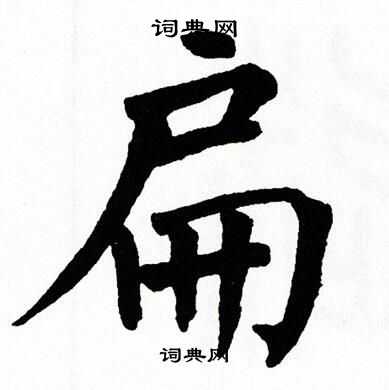 词典网
扁
词典网